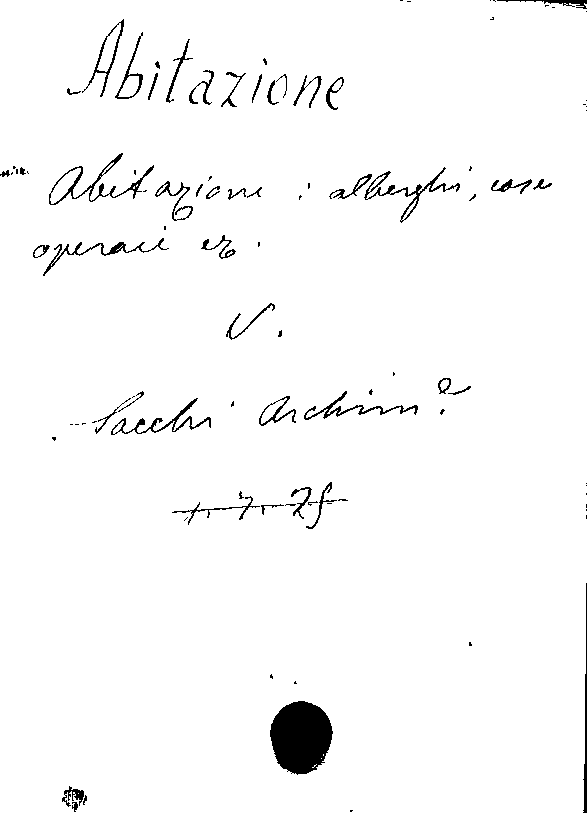 Abitazione
Abitazioni : alberghi, case
operaie ec.
V.
Sacchi Archim.e